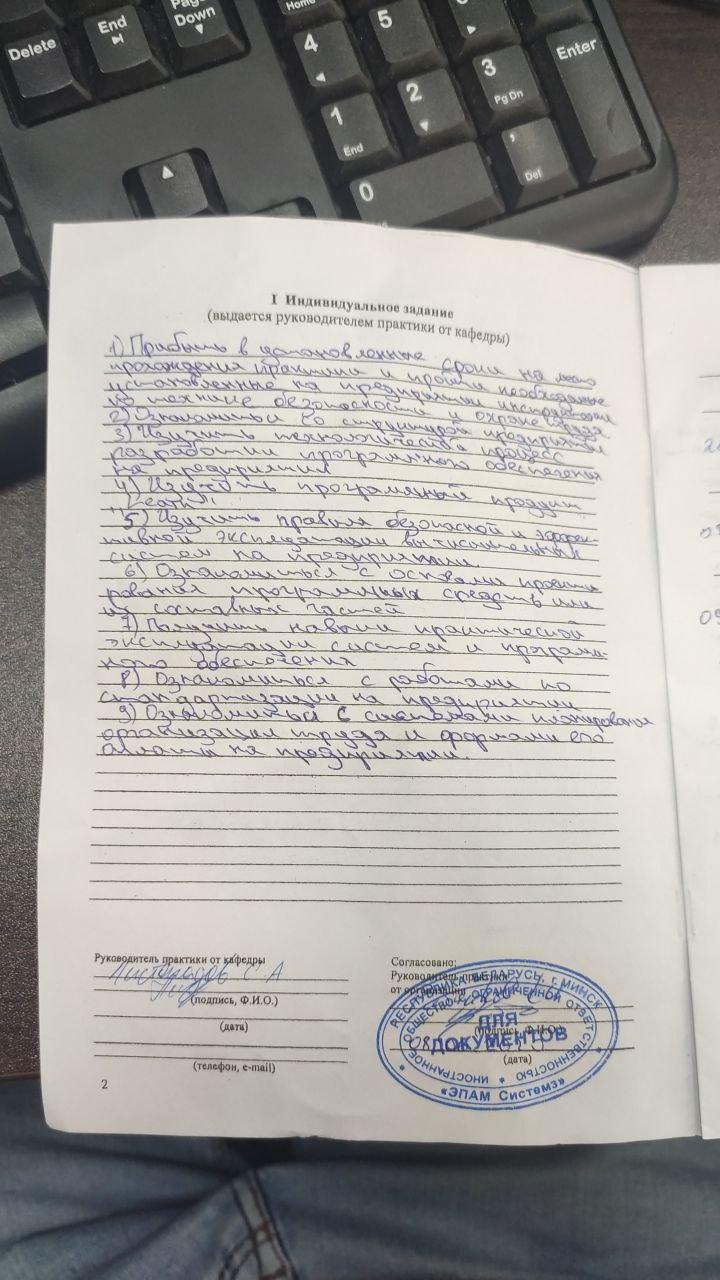 Delete
End
Page Down
Home
4
5
6
1
End
2
3
Pg Dn
Enter
0
,
Del
I Индивидуальное задание
(выдается руководителем практики от кафедры)
1) Прибыть в установленные сроки на место
прохождения практики и пройти необходимые
установленные на предприятии инструктажи
по технике безопасности и охране труда
2) Ознакомиться со структурой предприятия
3) Изучить технологический процесс
разработки программного обеспечения
на предприятии
4) Изучить программный продукт
5) Изучить правила безопасной и эффек-
тивной эксплуатации вычислительных
систем на предприятии.
6) Ознакомиться с основами проекти
рования программных средств или
их составных частей
7) Получить навыки практической
эксплуатации систем и программ-
ного обеспечения
8) Ознакомиться с работами по
стандартизации на предприятии
9) Ознакомиться с системами планирования
организации труда и формами его
оплаты на предприятии.
Руководитель практики от кафедры
С.А
(подпись, Ф.И.О.)
(дата)
(телефон, e-mail)
2
Согласовано:
Руководитель практики
от организации
(подпись, Ф.И.О.)
08
(дата)
РЕСПУБЛИКА БЕЛАРУСЬ, г. МИНСК
ИНОСТРАННОЕ ОБЩЕСТВО С ОГРАНИЧЕННОЙ ОТВЕТСТВЕННОСТЬЮ
ДЛЯ
ДОКУМЕНТОВ
«ЭПАМ Системз»